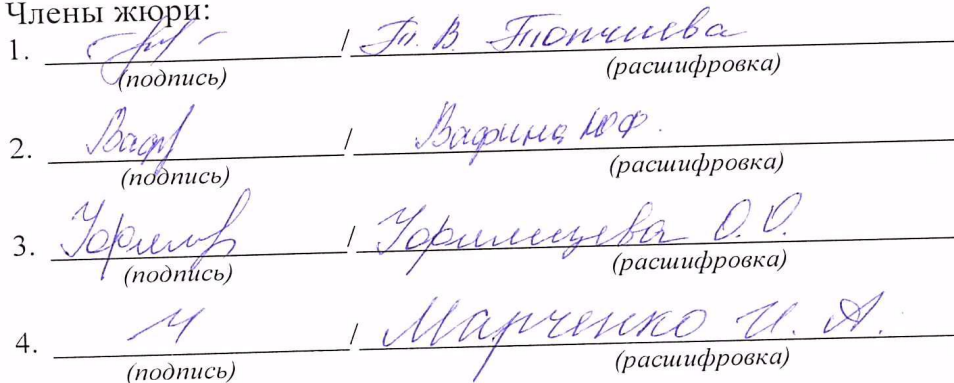 Члены жюри:
1. / Т. В. Топчиева
(подпись) (расшифровка)
2. Ваф / Вафина Ю.Ф.
(подпись) (расшифровка)
3. / О. О.
(подпись) (расшифровка)
4. М / Марченко И. А.
(подпись) (расшифровка)